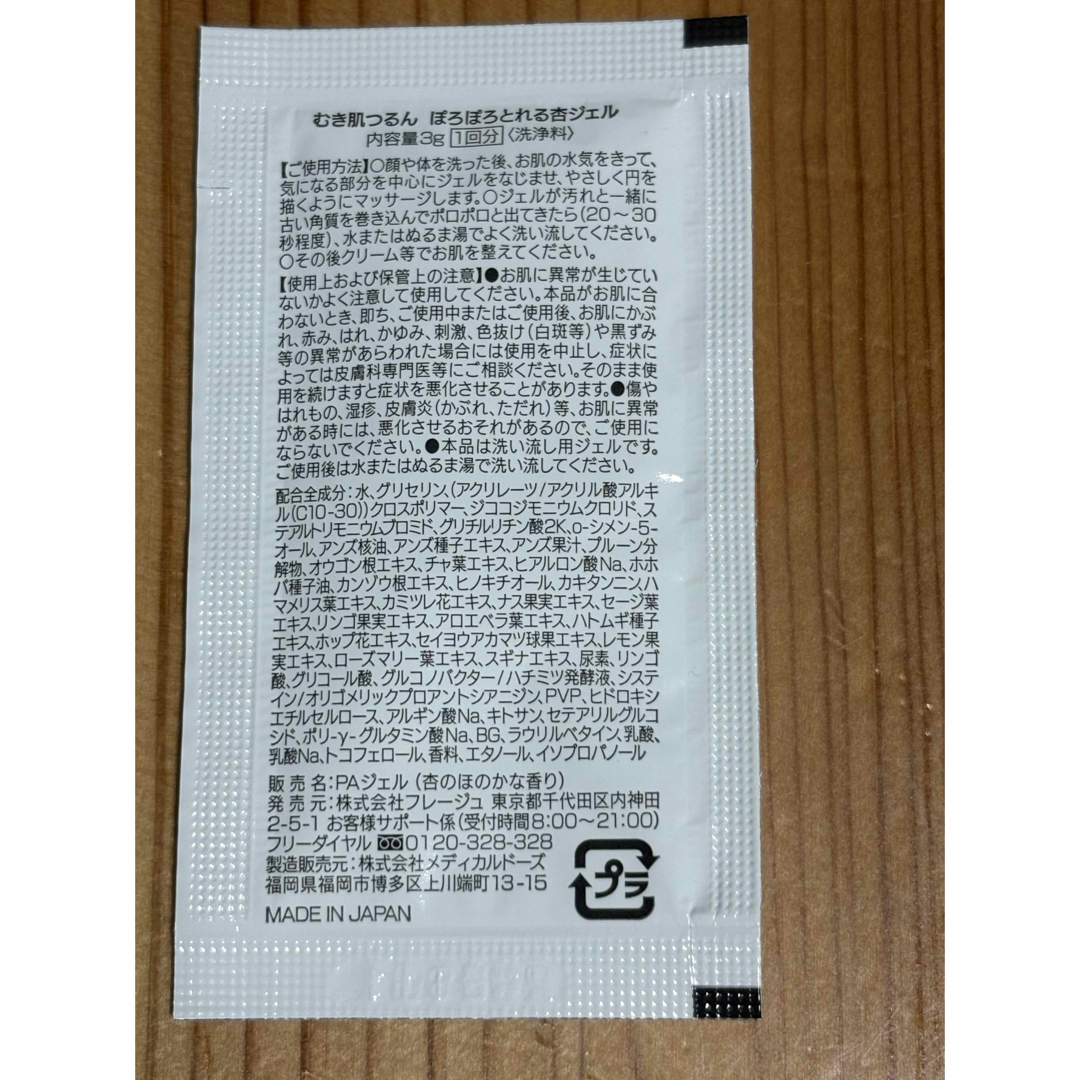 むき肌つるん ぽろぽろとれる杏ジェル
内容量3g 1回分 〈洗浄料〉
【ご使用方法】○顔や体を洗った後、お肌の水気をきって、
気になる部分を中心にジェルをなじませ、やさしく円を
描くようにマッサージします。○ジェルが汚れと一緒に
古い角質を巻き込んでポロポロと出てきたら(20〜30
秒程度)、水またはぬるま湯でよく洗い流してください。
○その後クリーム等でお肌を整えてください。
【使用上および保管上の注意】●お肌に異常が生じてい
ないかよく注意して使用してください。本品がお肌に合
わないとき、即ち、ご使用中またはご使用後、お肌にかぶ
れ、赤み、はれ、かゆみ、刺激、色抜け(白斑等)や黒ずみ
等の異常があらわれた場合には使用を中止し、症状に
よっては皮膚科専門医等にご相談ください。そのまま使
用を続けますと症状を悪化させることがあります。●傷や
はれもの、湿疹、皮膚炎(かぶれ、ただれ)等、お肌に異常
がある時には、悪化させるおそれがあるので、ご使用に
ならないでください。●本品は洗い流し用ジェルです。
ご使用後は水またはぬるま湯で洗い流してください。
配合全成分:水、グリセリン、(アクリレーツ/アクリル酸アルキ
ル(C10-30))クロスポリマー、ジココジモニウムクロリド、ス
テアルトリモニウムブロミド、グリチルリチン酸2K、o-シメン-5-
オール、アンズ核油、アンズ種子エキス、アンズ果汁、プルーン分
解物、オウゴン根エキス、チャ葉エキス、ヒアルロン酸Na、ホホ
バ種子油、カンゾウ根エキス、ヒノキチオール、カキタンニン、ハ
マメリス葉エキス、カミツレ花エキス、ナス果実エキス、セージ葉
エキス、リンゴ果実エキス、アロエベラ葉エキス、ハトムギ種子
エキス、ホップ花エキス、セイヨウアカマツ球果エキス、レモン果
実エキス、ローズマリー葉エキス、スギナエキス、尿素、リンゴ
酸、グリコール酸、グルコノバクター/ハチミツ発酵液、システ
イン/オリゴメリックプロアントシアニジン、PVP、ヒドロキシ
エチルセルロース、アルギン酸Na、キトサン、セテアリルグルコ
シド、ポリ-γ-グルタミン酸Na、BG、ラウリルベタイン、乳酸、
乳酸Na、トコフェロール、香料、エタノール、イソプロパノール
販売名:PAジェル (杏のほのかな香り)
発売元:株式会社フレージュ 東京都千代田区内神田
2-5-1 お客様サポート係(受付時間8:00〜21:00)
フリーダイヤル 0120-328-328
製造販売元:株式会社メディカルドーズ
福岡県福岡市博多区上川端町13-15
MADE IN JAPAN
プラ